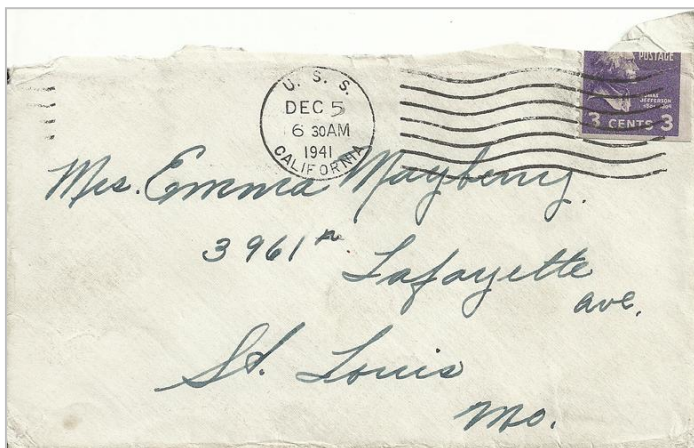 U. S. S.
DEC 5
6 30AM
1941
CALIFORNIA
POSTAGE
JEFFERSON
3 CENTS 3
Mrs. Emma Mayberry.
3961A
Lafayette
ave.
St. Louis
Mo.